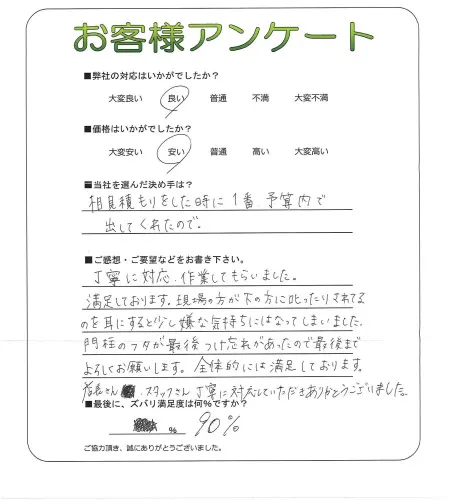 お客様アンケート
■弊社の対応はいかがでしたか?
大変良い 良い 普通 不満 大変不満
■価格はいかがでしたか?
大変安い 安い 普通 高い 大変高い
■当社を選んだ決め手は?
相見積もりをした時に1番、予算内で
出してくれたので。
■ご感想・ご要望などをお書き下さい。
丁寧に対応、作業してもらいました。
満足しております。現場の方が下の方に叱ったりされてる
のを耳にすると少し嫌な気持ちにはなってしまいました。
門柱のフタが最後つけ忘れがあったので最後まで
よろしくお願いします。全体的には満足しております。
スタッフさん丁寧に対応していただきありがとうございました。
■最後に、ズバリ満足度は何%ですか?
% 90%
ご協力頂き、誠にありがとうございました。